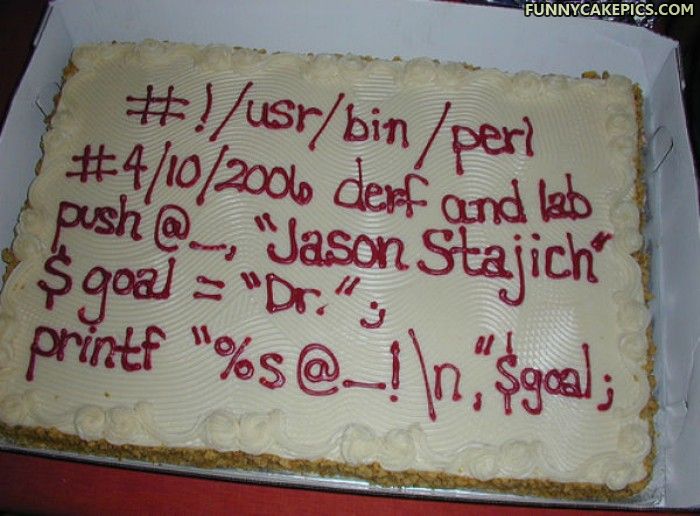 FUNNYCAKEPICS.COM
#!/usr/bin/perl
#4/10/2006 derf and lab
push @_, "Jason Stajich"
$goal = "Dr.";
printf "%s @_!\n", $goal;